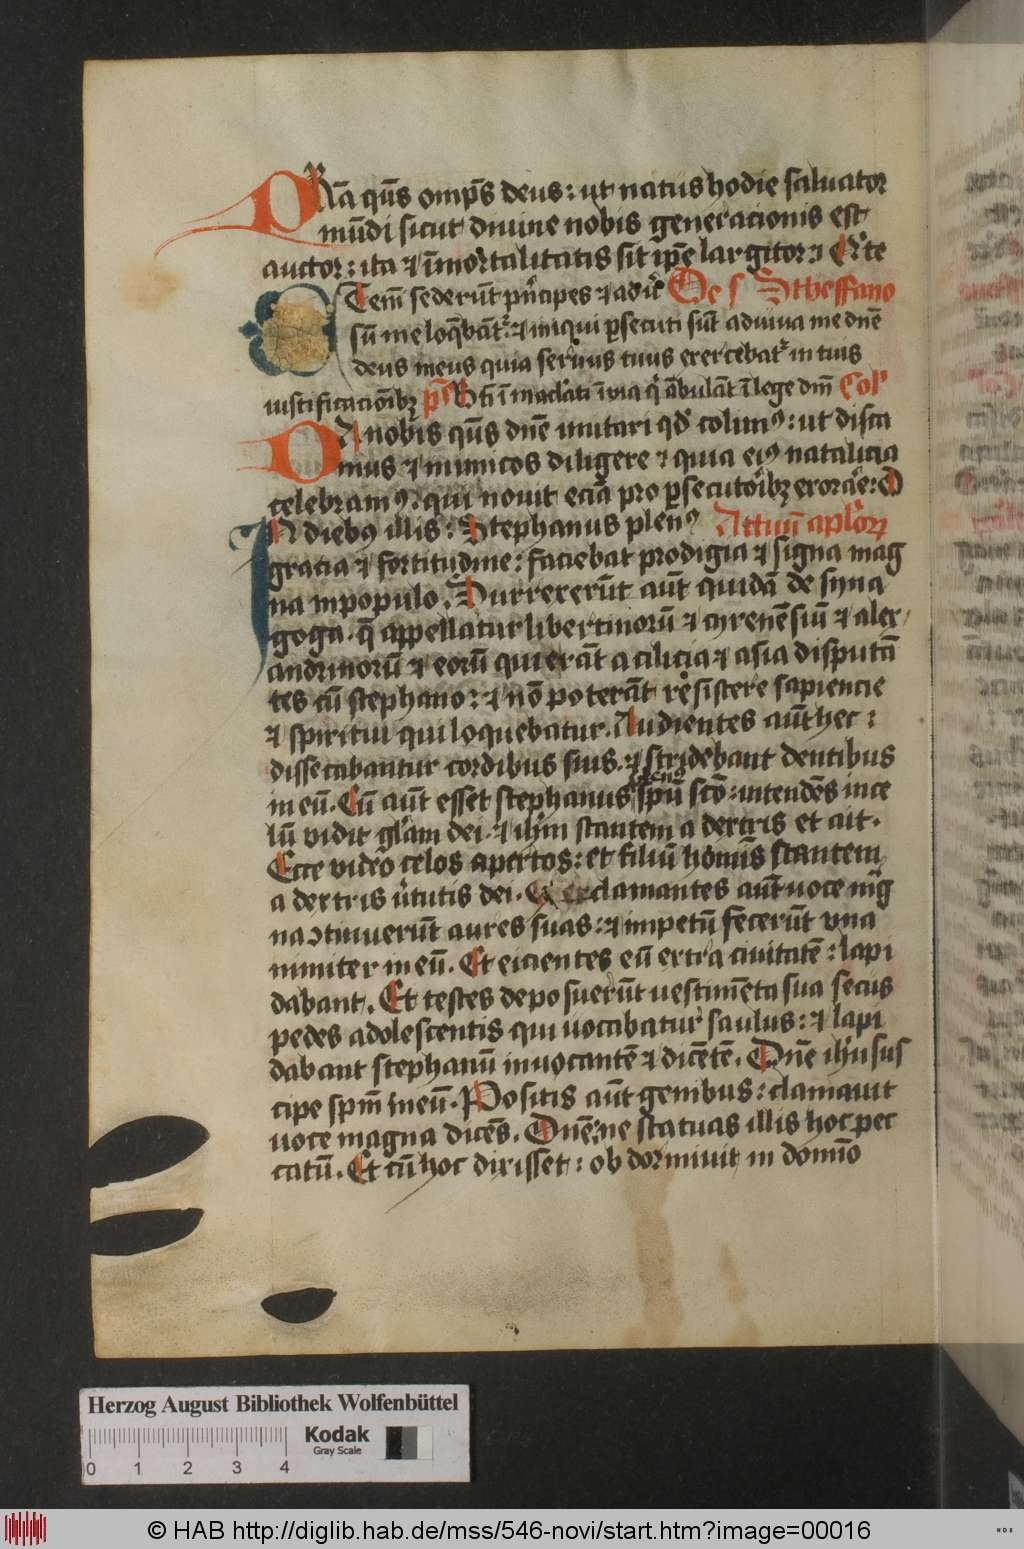 PRÆsta q̄us omp̄s deus: ut natus hodie saluator
mūdi sicut diuine nobis generacionis est
auctor: ita ⁊ īmortalitatis sit ip̄e largitor ⁊ Q'te
Tem̄ sederūt pn̄cipes ⁊ adu'c De s Stheffano
sū me loq̄bāt' ⁊ iniqui p̱secuti sūt adiuua me dn̄e
deus meus quia seruus tuus exercebat' in tuis
iustificacioībꝫ p̄s Bt̄i ī maclati ī uia q' ābulāt ī lege dn̄i Col'
DA nobis q̄us dn̄e imitari qd' colimꝰ: ut disca
mus ⁊ inimicos diligere ⁊ quia eiꝰ natalicia
celebramꝰ: qui nouit eciā pro p̱secutoribꝫ exorāe: D
IN diebꝰ illis: Stephanus plenꝰ Actuū apl'oꝝ
gracia ⁊ fortitudine: faciebat prodigia ⁊ signa mag
na in populo. Surrexerūt aūt quidā de syna
goga. q̄ appellatur libertinorū ⁊ cyrenēsiū ⁊ alex
andrinorū ⁊ eorū qui erāt a cilicia ⁊ asia disputā
tes cū stephano: ⁊ nō poterāt resistere sapiencie
⁊ spiritui qui loquebatur. Audientes aūt hec:
dissecabantur cordibus suis. ⁊ stridebant dentibus
in eū. Cū aūt esset stephanus plenꝰ sp̄u scō: intendēs in ce
lū vidit gl'am dei. ⁊ ih̄m stantem a dextris et ait.
Ecce video celos apertos: et filiū homīs stantem
a dextris u'tutis dei. Ex exclamantes aūt uoce mag
na ↄtinuerūt aures suas: ⁊ impetū fecerūt vna
nimiter in eū. Et eicientes eū extra ciuitatē: lapi
dabant. Et testes deposuerūt uestimēta sua secus
pedes adolescentis qui uocabatur saulus: ⁊ lapi
dabant stephanū inuocantē ⁊ dicētē. Dn̄e ih̄u sus
cipe sp̄m meū. Positis aūt genibus: clamauit
uoce magna dicēs. Dn̄e: ne statuas illis hoc pec
catū. Et cū hoc dixisset: obdormiuit in domīo
Herzog August Bibliothek Wolfenbüttel
Kodak
Gray Scale
0 1 2 3 4
© HAB http://diglib.hab.de/mss/546-novi/start.htm?image=00016